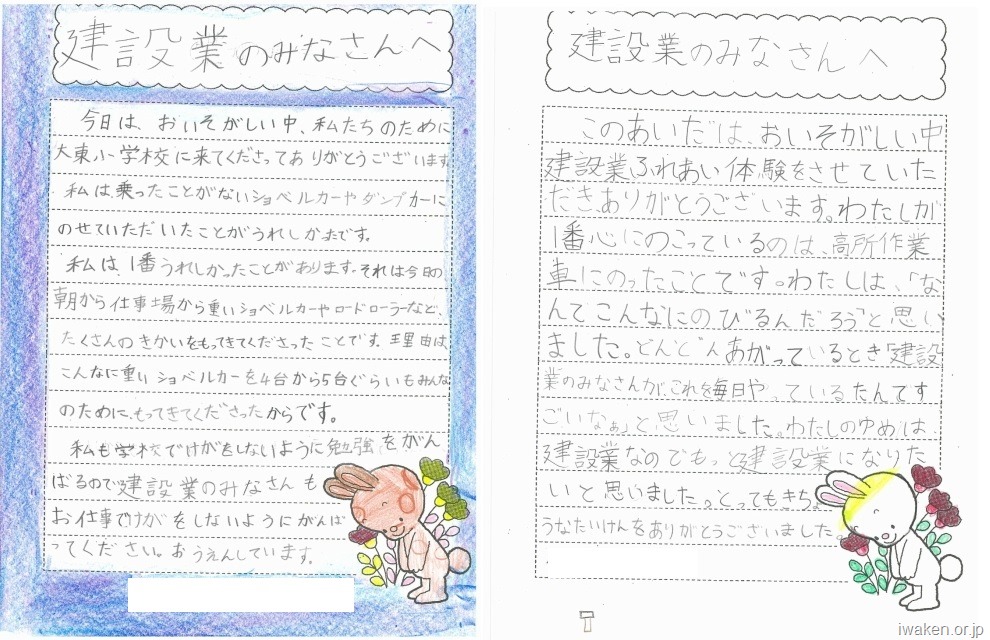 建設業のみなさんへ
今日は、おいそがしい中、私たちのために
大東小学校に来てくださってありがとうございます。
私は乗ったことがないショベルカーやダンプカーに
のせていただいたことがうれしかったです。
私は、1番うれしかったことがあります。それは今日の
朝から仕事場から重いショベルカーやロードローラーなど、
たくさんのきかいをもってきてくださったことです。理由は、
こんなに重いショベルカーを4台から5台ぐらいもみんな
のために、もってきてくださったからです。
私も学校でけがをしないように勉強をがん
ばるので建設業のみなさんも
お仕事でけがをしないようにがんば
ってください。おうえんしています。
建設業のみなさんへ
このあいだは、おいそがしい中
建設業ふれあい体験をさせていた
だきありがとうございます。わたしが
1番心にのこっているのは、高所作業
車にのったことです。わたしは、「な
んてこんなにのびるんだろう」と思い
ました。どんどんあがっているとき「建設
業のみなさんが、これを毎日やっているたんてす
ごいなぁ」と思いました。わたしのゆめは、
建設業なのでもっと建設業になりた
いと思いました。とってもきちょ
うなたいけんをありがとうございました。
iwaken.or.jp